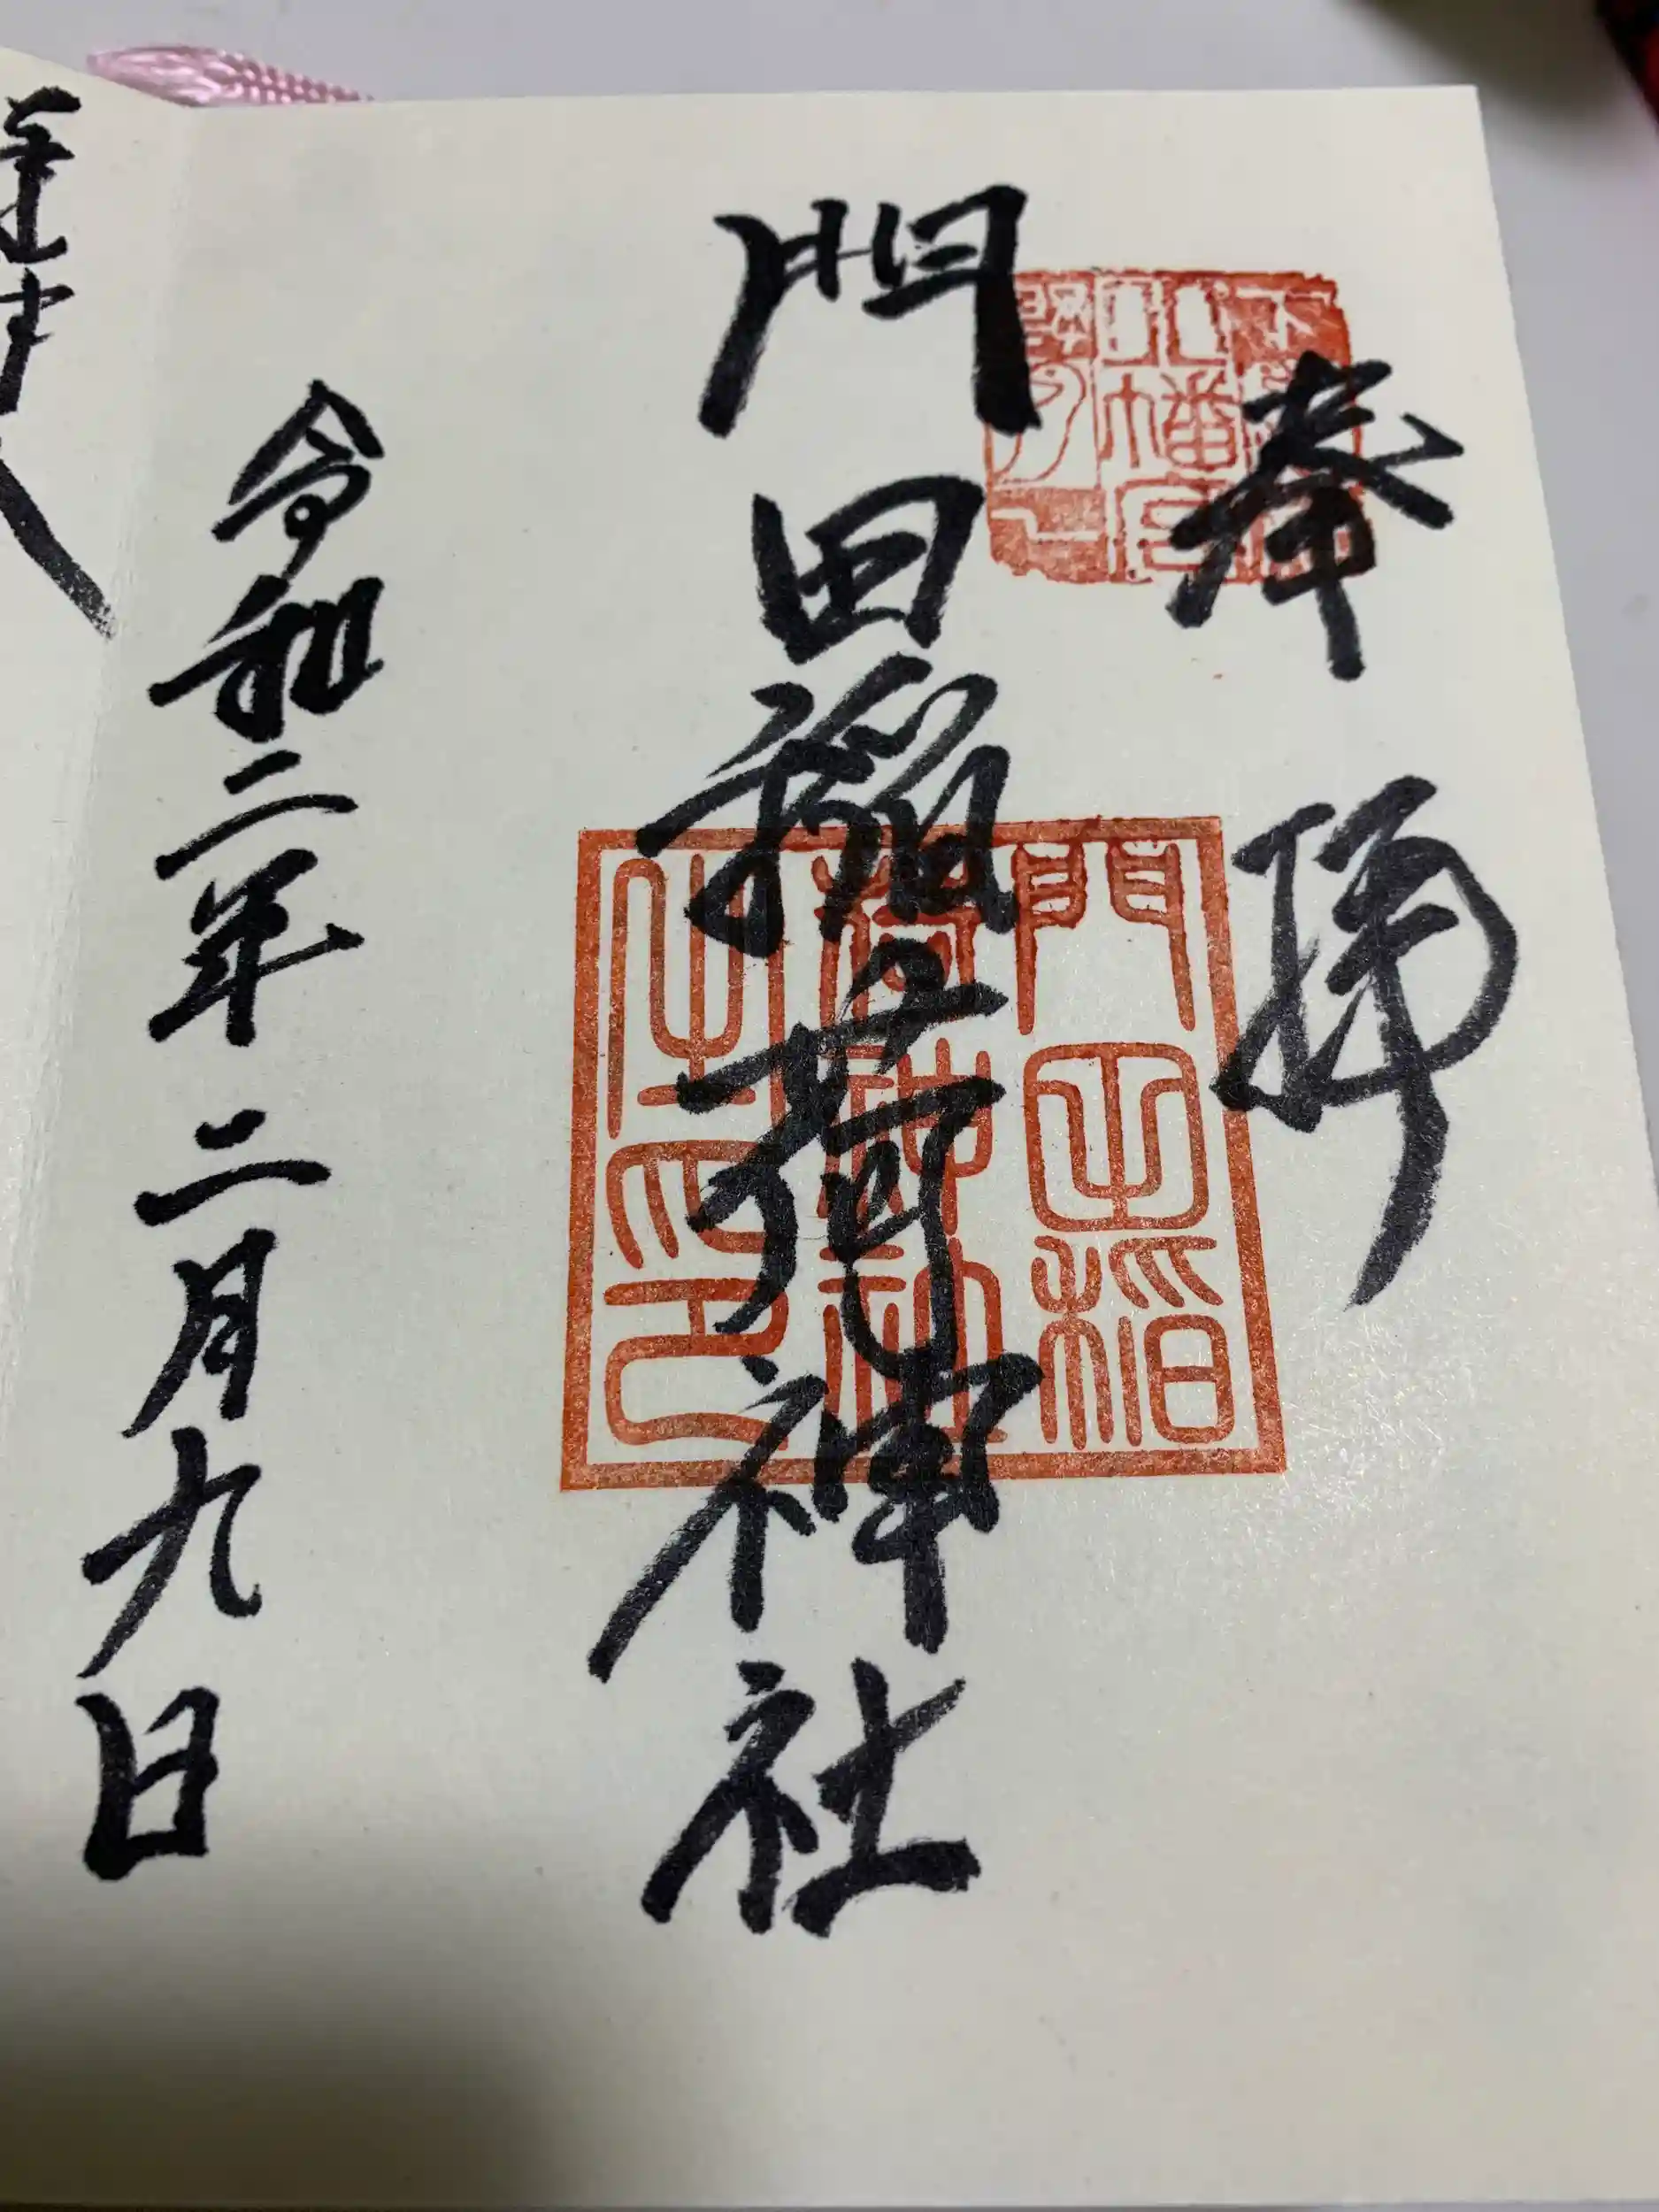 奉拝
門田稲荷神社
令和二年二月九日
門田稲
荷神社
之印
八幡宮